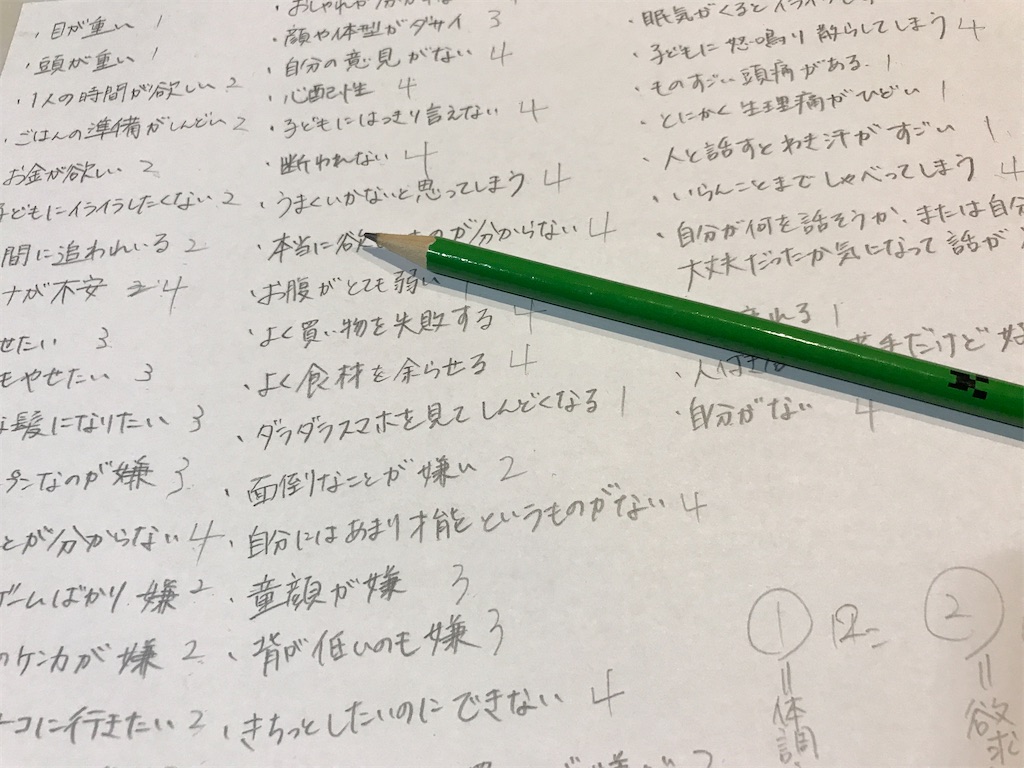 ・目が重い 1
・頭が重い 1
・1人の時間が欲しい 2
・ごはんの準備がしんどい 2
お金が欲しい 2
子どもにイライラしたくない 2
間に追われいる 2
ナが不安 4
せたい 3
もやせたい 3
髪になりたい 3
なのが嫌 3
とが分からない 4
ゲームばかり嫌 2
のケンカが嫌 2
コに行きたい 2
・顔や体型がダサイ 3
・自分の意見がない 4
・心配性 4
・子どもにはっきり言えない 4
・断われない 4
・うまくいかないと思ってしまう 4
・本当に欲 のが分からない 4
・お腹がとても弱い 1
・よく買い物を失敗する 4
・よく食材を余らせる 4
・ダラダラスマホを見てしんどくなる 1
・面倒なことが嫌い 2
・自分にはあまり才能というものがない 4
・童顔が嫌 3
・背が低いのも嫌 3
・きちっとしたいのにできない 4
・眠気がくるとイライラし
・子どもに怒鳴り散らしてしまう 4
・ものすごい頭痛がある 1
・とにかく生理痛がひどい 1
・人と話すとわき汗がすごい 1
・いらんことまでしゃべってしまう 4
・自分が何を話そうか、または自分
大丈夫だったか気になって話が
れる 1
・人付き 手だけど
・自分がない 4
① ②
= =
体調 欲求